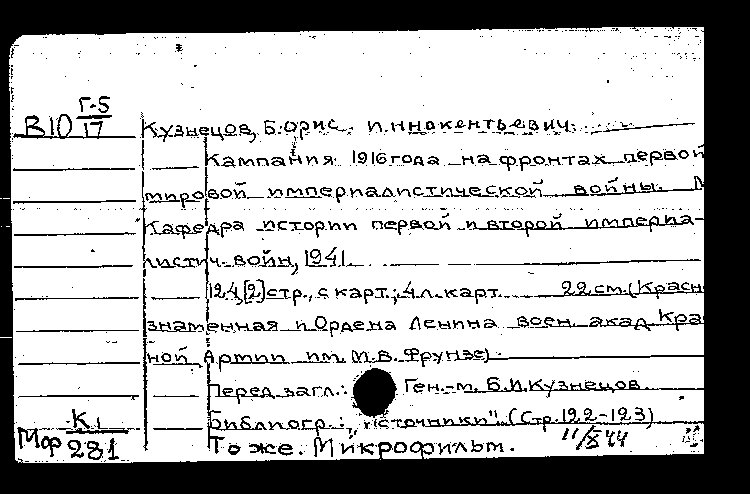 Г-5
В10 17 Кузнецов, Борис Иннокентьевич.
Кампания 1916 года на фронтах первой
мировой империалистической войны. М
Кафедра истории первой и второй империа-
листич. войн, 1941.
124, [2] стр., с карт.; 4 л. карт. 22 см. (Красн
знаменная и Ордена Ленина воен. акад. Кра
ной Армии им. М.В. Фрунзе).
Перед загл.: Ген.-м. Б.И. Кузнецов.
Библиогр.: "Источники". (Стр. 122-123)
Мф К1 281 То же. Микрофильм. 11/844